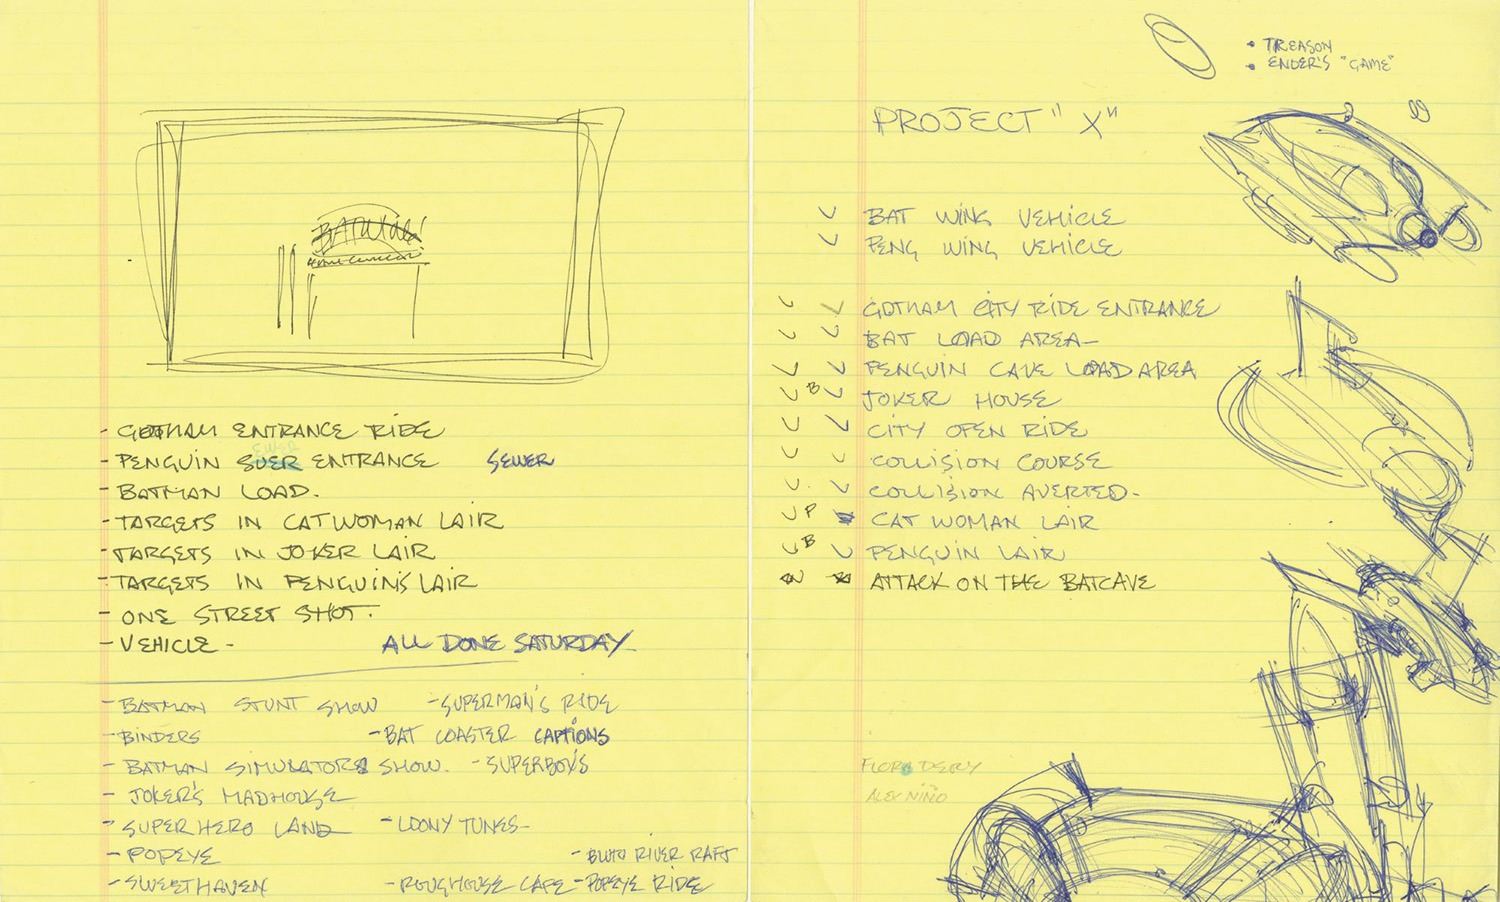 - GOTHAM ENTRANCE RIDE
- PENGUIN SUER ENTRANCE SEWER
- BATMAN LOAD.
- TARGETS IN CATWOMAN LAIR
- TARGETS IN JOKER LAIR
- TARGETS IN PENGUIN'S LAIR
- ONE STREET SHOT.
- VEHICLE -
ALL DONE SATURDAY
- BATMAN STUNT SHOW - SUPERMAN'S RIDE
- BINDERS - BAT COASTER CAPTIONS
- BATMAN SIMULATOR SHOW. - SUPERBOY'S
- JOKER'S MADHOUSE
- SUPER HERO LAND - LOONY TUNES-
- POPEYE - BLUTO RIVER RAFT
- SWEETHAVEN - ROUGHOUSE CAFE - POPEYE RIDE
• TREASON
• ENDER'S "GAME"
PROJECT "X"
BAT WING VEHICLE
PENG WING VEHICLE
GOTHAM CITY RIDE ENTRANCE
BAT LOAD AREA-
PENGUIN CAVE LOAD AREA
B JOKER HOUSE
CITY OPEN RIDE
COLLISION COURSE
COLLISION AVERTED-
P CAT WOMAN LAIR
B PENGUIN LAIR
ATTACK ON THE BATCAVE
FLORO DERY
ALEX NIÑO